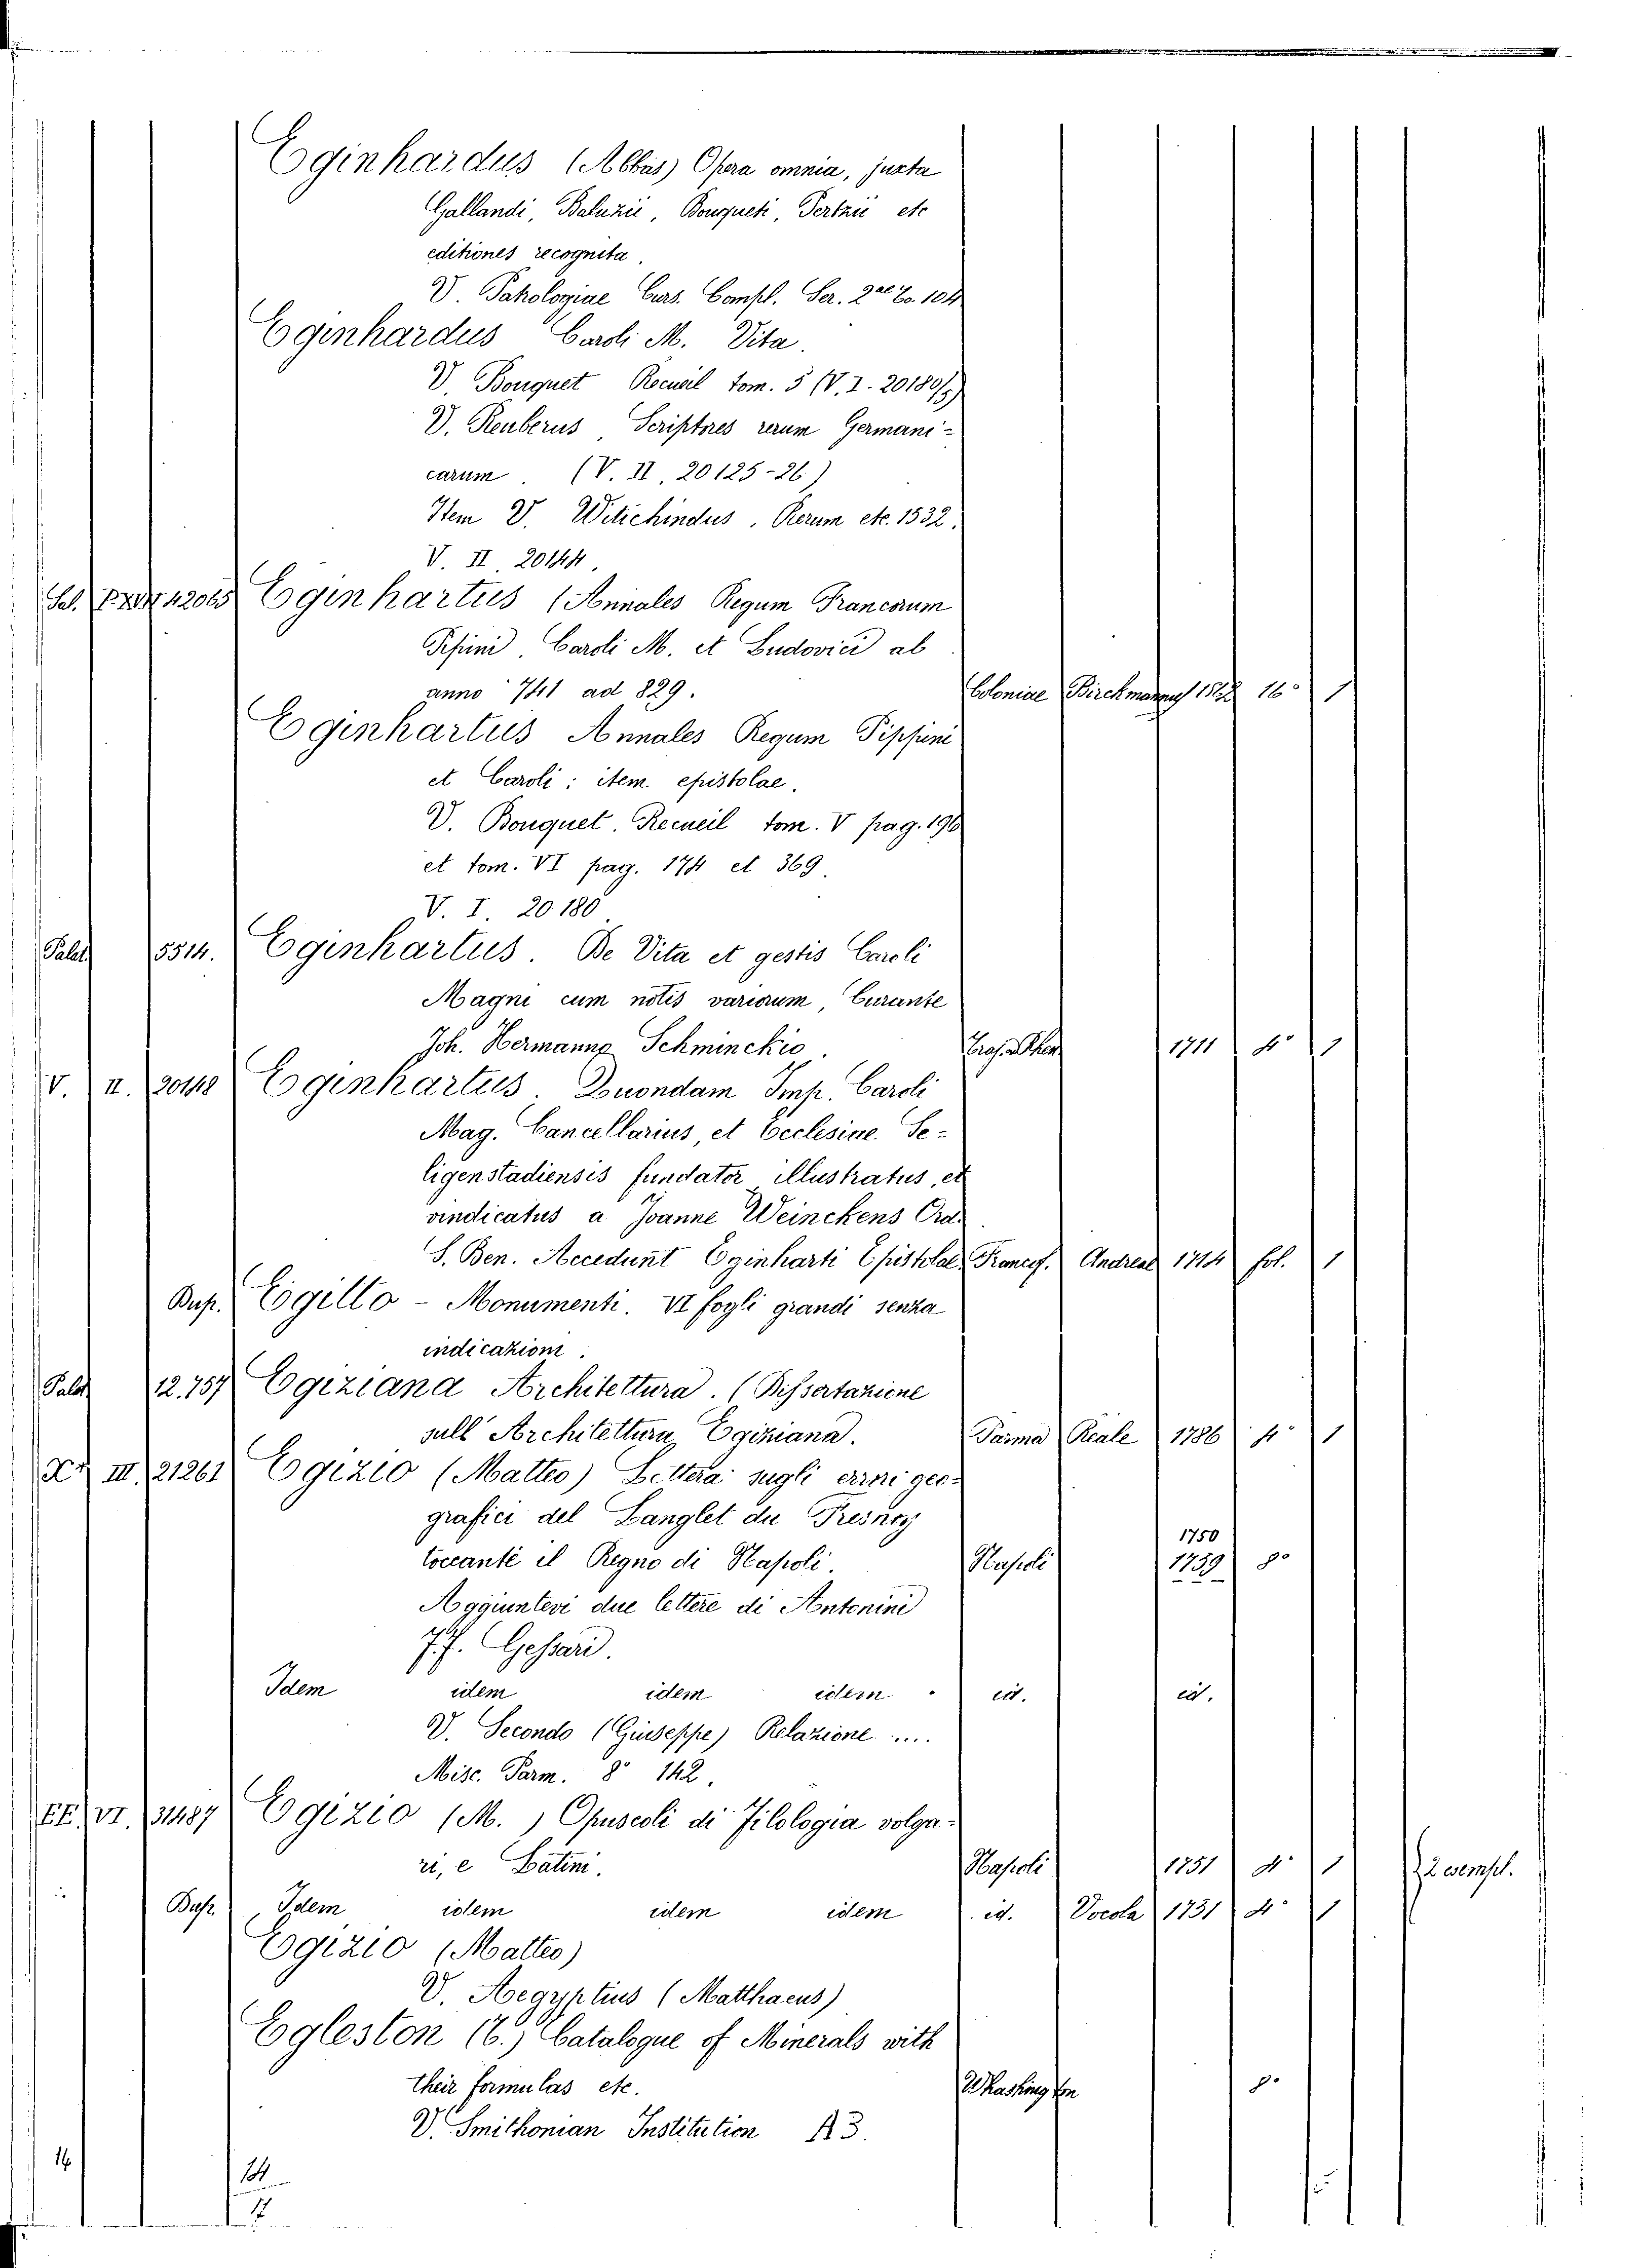 Eginhardus (Abbas) Opera omnia, juxta
Gallandi, Baluzii, Bouqueti, Pertzii etc
editiones recognita.
V. Patrologiae Curs. Compl. Ser. 2ae To. 104
Eginhardus Caroli M. Vita.
V. Bouquet Recueil tom. 5 (V. I. 20180/5)
V. Reuberus, Scriptores rerum Germani-
carum. (V. II. 20125-26)
Item V. Witichindus. Rerum etc. 1532.
V. II. 20144.
Sal. 42065 Eginhartus (Annales Regum Francorum
Pipini, Caroli M. et Ludovici ab
anno 741 ad 829. Coloniae Birckmannus 16° 1
Eginhartus Annales Regum Pippini
et Caroli: item epistolae.
V. Bouquet. Recueil tom. V pag. 196
et tom. VI pag. 174 et 369.
V. I. 20180
Palat. 5514. Eginhartus. De Vita et gestis Caroli
Magni cum notis variorum, Curante
Joh. Hermanno Schminckio. Traj. a. Rhen. 1711 4° 1
V. II. 20148 Eginhartus. Quondam Imp. Caroli
Mag. Cancellarius, et Ecclesiae Se-
ligenstadiensis fundator illustratus, et
vindicatus a Joanne Weinckens Ord.
S. Ben. Accedunt Eginharti Epistolae. Francf. Andreae 1714 fol. 1
Bup. Egillo - Monumenti. VI fogli grandi senza
indicazioni.
Palat 12.757 Egiziana Architettura. (Dissertazione
sull' Architettura Egiziana. Parma Reale 1786 4° 1
III. 21261 Egizio (Matteo) Lettera sugli errori geo-
grafici del Langlet du Fresnoy
toccante il Regno di Napoli. Napoli 1750
1759 8°
Aggiuntevi due lettere di Antonini
Gessari.
Idem idem idem idem. id. id.
V. Secondo (Giuseppe) Relazione ....
Misc. Parm. 8° 142.
EE. VI. 31487 Egizio (M.) Opuscoli di Filologia volga-
ri, e Latini. Napoli 1751 4° 1 2 esempl.
Bup. Idem idem idem idem id. Vocola 1751 4° 1
Egizio (Matteo)
V. Aegyptius (Matthaeus)
Egleston (T.) Catalogue of Minerals with
their formulas etc. Whashington 8°
V. Smithonian Institution A3.
14
14